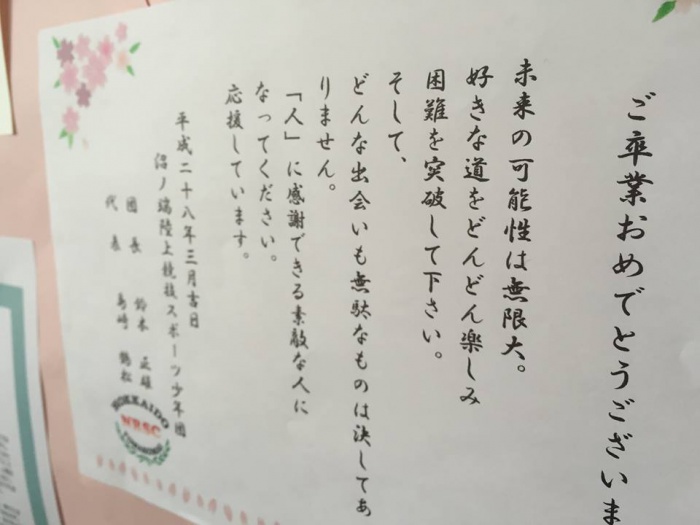 ご卒業おめでとうございま
未来の可能性は無限大。
好きな道をどんどん楽しみ
困難を突破して下さい。
そして、
どんな出会いも無駄なものは決してあ
りません。
「人」に感謝できる素敵な人に
なってください。
応援しています。
平成二十八年三月吉日
沼ノ端陸上競技スポーツ少年団
団長 鈴木 正雄
代表 島崎 鶴松
HOKKAIDO
NRSC